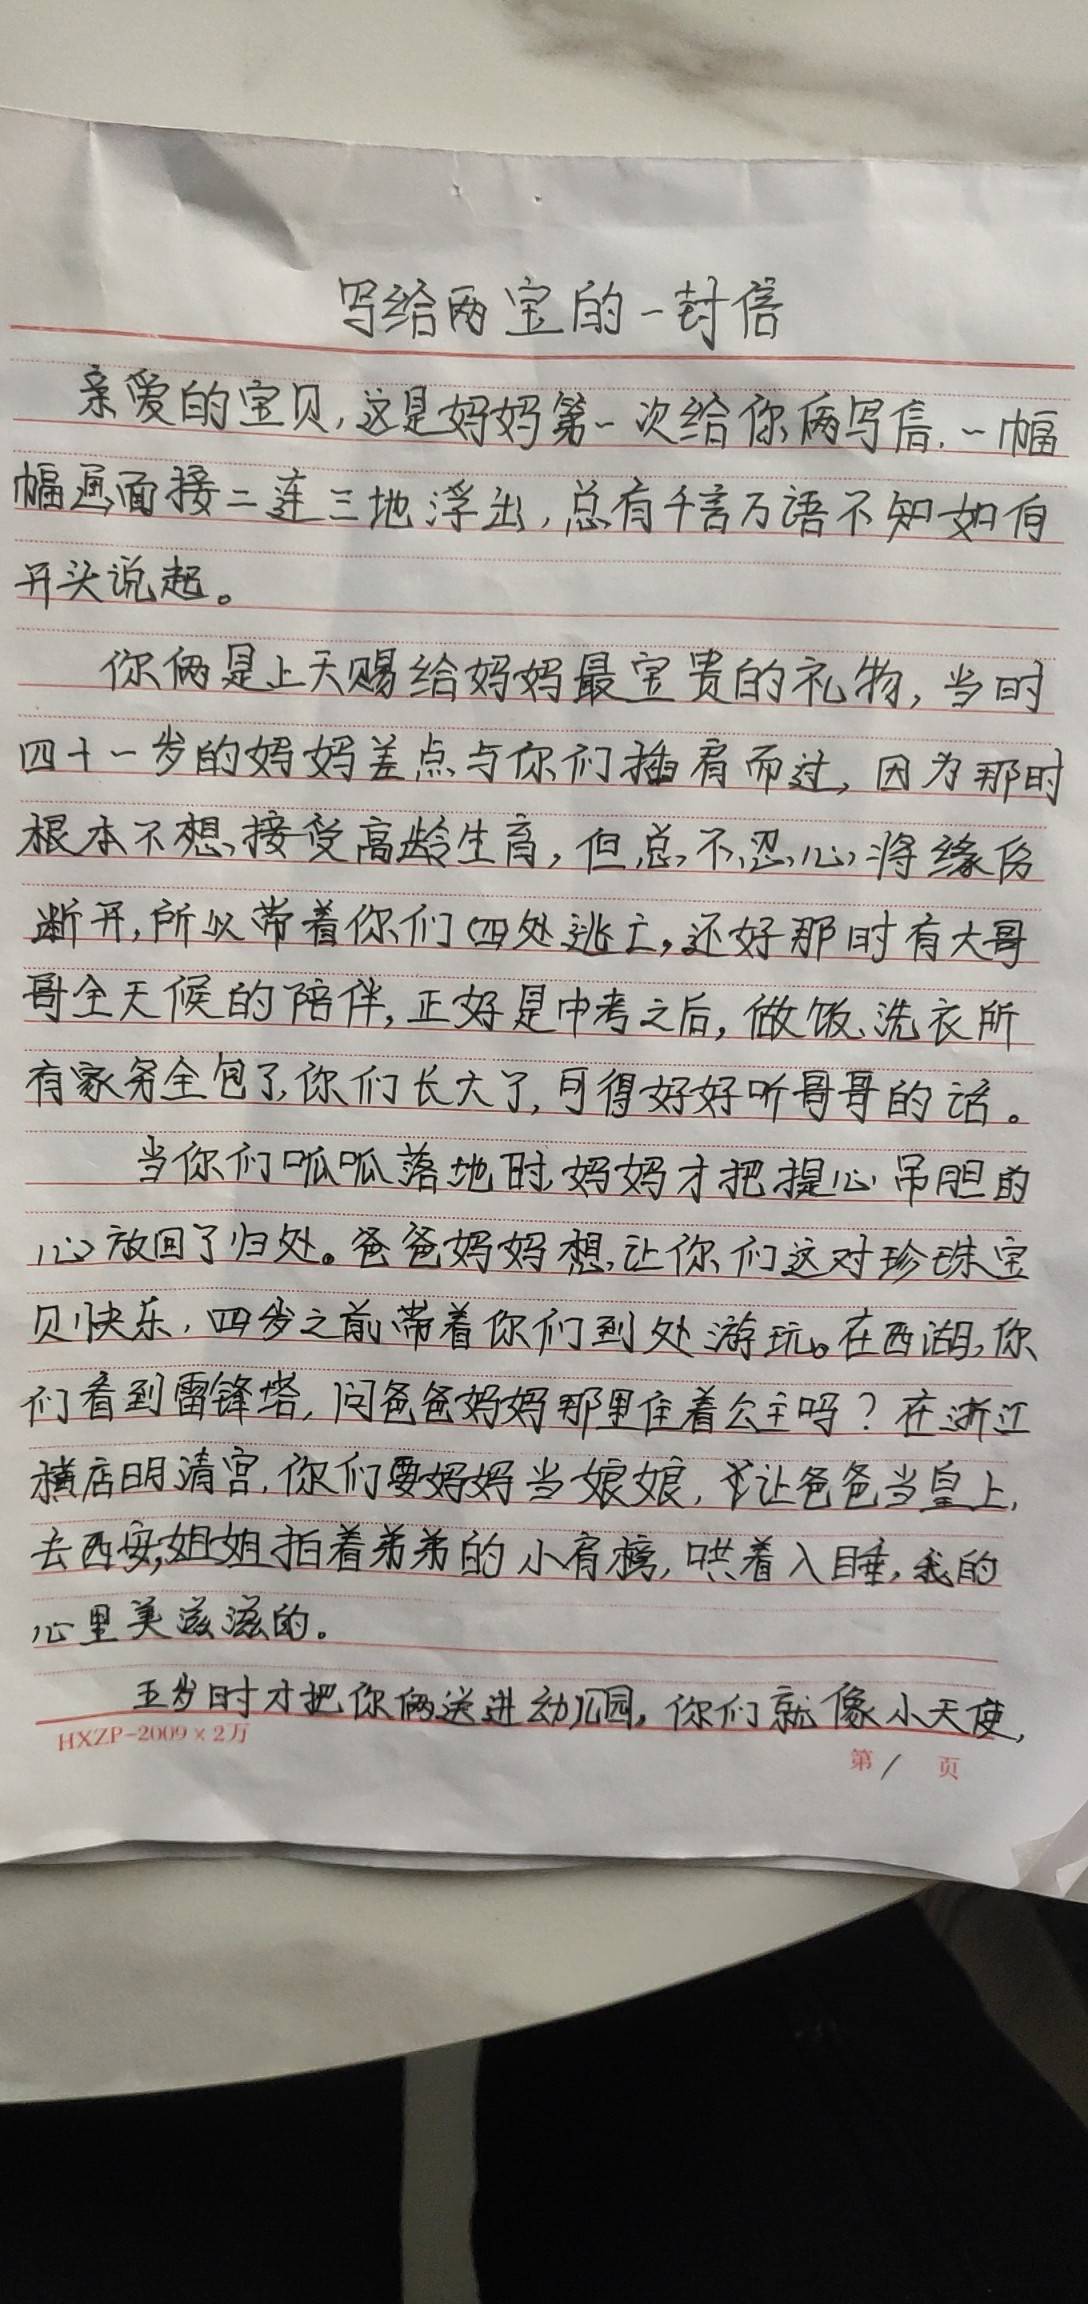 写给两宝的一封信
亲爱的宝贝,这是妈妈第一次给你俩写信,一幅
幅画面接二连三地浮出,总有千言万语不知如何
开头说起。
你俩是上天赐给妈妈最宝贵的礼物,当时
四十一岁的妈妈差点与你们擦肩而过,因为那时
根本不想接受高龄生育,但总不忍心将缘份
断开,所以带着你们四处逃亡,还好那时有大哥
哥全天候的陪伴,正好是中考之后,做饭、洗衣所
有家务全包了,你们长大了,可得好好听哥哥的话。
当你们呱呱落地时,妈妈才把提心吊胆的
心放回了归处。爸爸妈妈想,让你们这对珍珠宝
贝快乐,四岁之前带着你们到处游玩。在西湖,你
们看到雷锋塔,问爸爸妈妈那里住着公主吗?在浙江
横店明清宫,你们要妈妈当娘娘,让爸爸当皇上,
去西安,姐姐拍着弟弟的小肩榜,哄着入睡,我的
心里美滋滋的。
五岁时才把你俩送进幼儿园,你们就像小天使,
HXZP-2009×2万
第 1 页